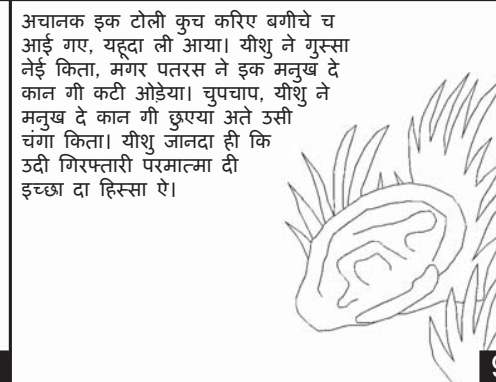 अचानक इक टोली कुच करिए बगीचे च
आई गए, यहूदा ली आया। यीशु ने गुस्सा
नेई किता, मगर पतरस ने इक मनुख दे
कान गी कटी ओड़ेया। चुपचाप, यीशु ने
मनुख दे कान गी छुएया अते उसी
चंगा किता। यीशु जानदा ही कि
उदी गिरफ्तारी परमात्मा दी
इच्छा दा हिस्सा ऐ।